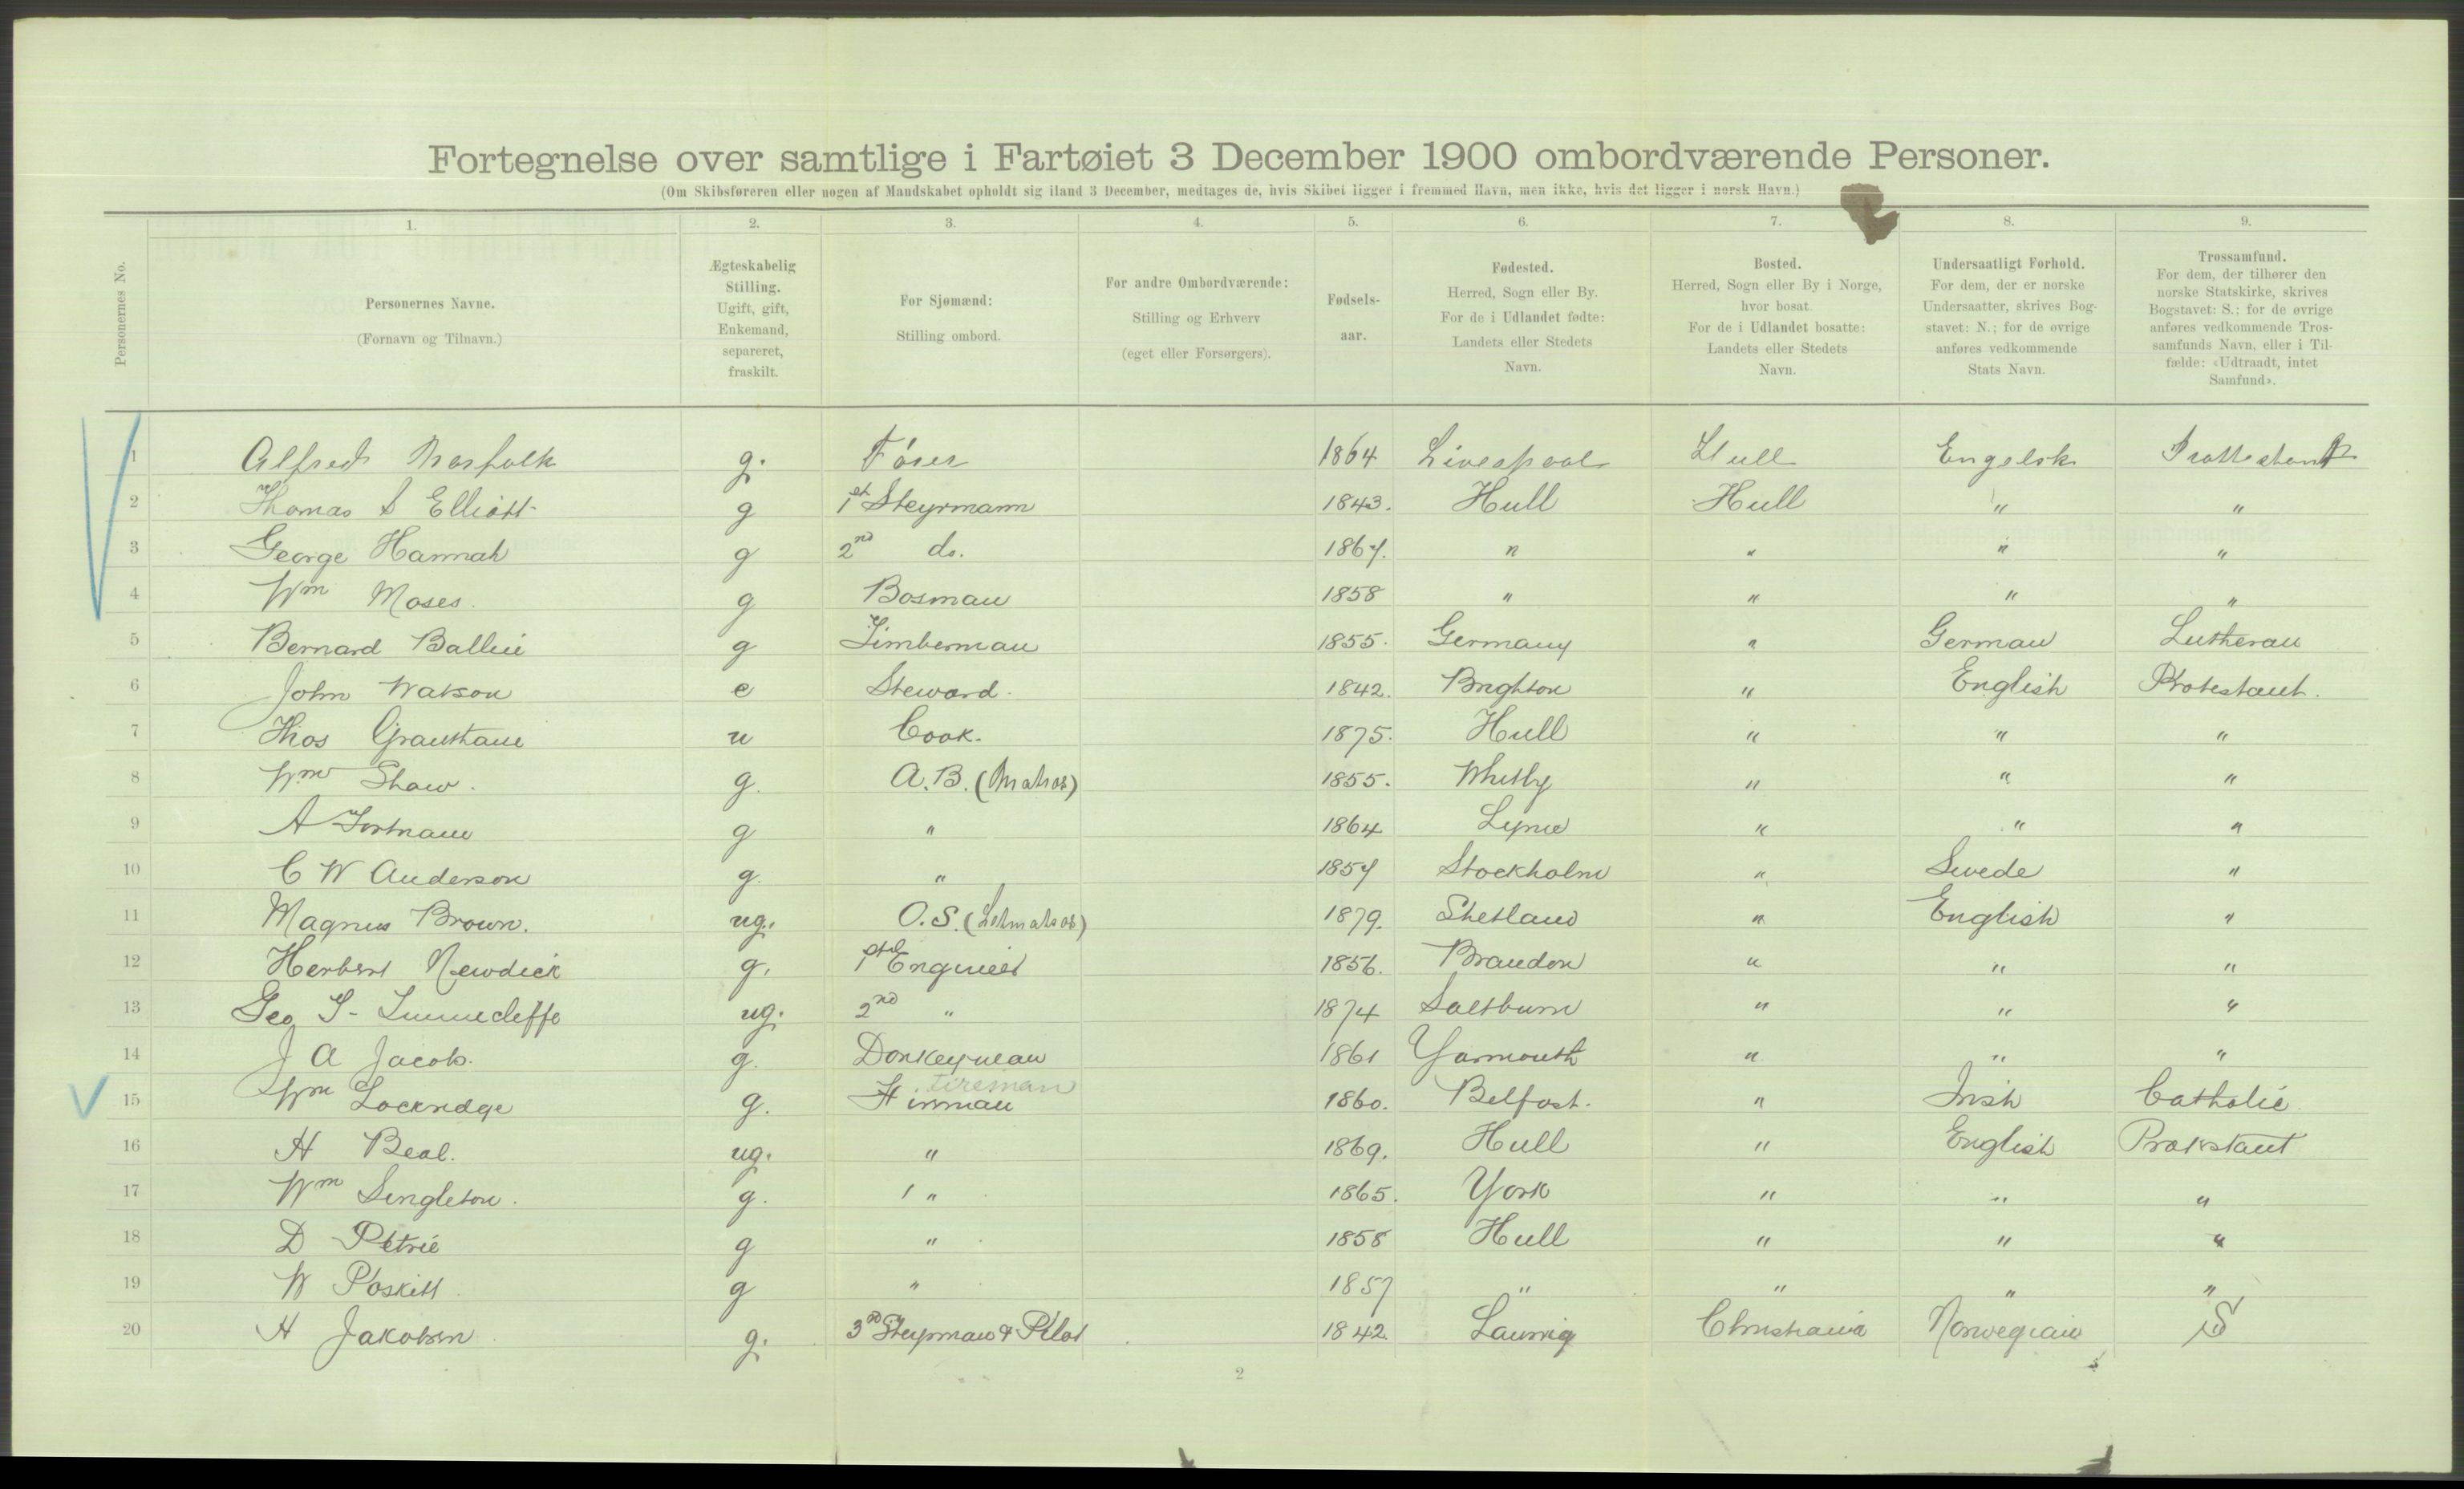 Fortegnelse over samtlige i Fartøiet 3 December 1900 ombordværende Personer.
(Om Skibsføreren eller nogen af Mandskabet opholdt sig iland 3 December, medtages de, hvis Skibet ligger i fremmed Havn, men ikke, hvis det ligger i norsk Havn.)
Personernes No.
1. 2. 3. 4. 5. 6. 7. 8. 9.
Personernes Navne.
(Fornavn og Tilnavn.)
Ægteskabelig
Stilling.
Ugift, gift,
Enkemand,
separeret,
fraskilt.
For Sjømænd:
Stilling ombord.
For andre Ombordværende:
Stilling og Erhverv
(eget eller Forsørgers).
Fødsels-
aar.
Fødested.
Herred, Sogn eller By.
For de i Udlandet fødte:
Landets eller Stedets
Navn.
Bosted.
Herred, Sogn eller By i Norge,
hvor bosat.
For de i Udlandet bosatte:
Landets eller Stedets
Navn.
Undersaatligt Forhold.
For dem, der er norske
Undersaatter, skrives Bog-
stavet: N.; for de øvrige
anføres vedkommende
Stats Navn.
Trossamfund.
For dem, der tilhører den
norske Statskirke, skrives
Bogstavet: S.; for de øvrige
anføres vedkommende Tros-
samfunds Navn, eller i Til-
fælde: «Udtraadt, intet
Samfund».
1 Alfred Norfolk g. Fører 1864 Liverpool Hull Engelsk
2 Thomas S Elliott g 1st Steyrmann 1843. Hull Hull " "
3 George Hannah g 2nd do. 1867. " " " "
4 Wm Moses. g Bosman 1858 " " " "
5 Bernard g Timberman 1855. Germany " German Lutheran
6 John Watson e Steward. 1842. Brighton " English Protestant.
7 Thos Grantham u Cook. 1875. Hull " " "
8 Wm Shaw. g. A.B. (Matros) 1855. Whitby " " "
9 A g " 1864 " " "
10 C W Anderson g. " 1857 Stockholm " Swede "
11 Magnus Brown. ug. O.S. (Letmatros) 1879. Shetland " English "
12 Herbert Newdick g. 1st Engineer 1856. Brandon " " "
13 Geo ug. 2nd " 1874 Saltburn " " "
14 J A Jacob. g. Donkeyman 1861 Yarmouth " " "
fireman
15 Wm Lockridge g. 1860. Belfast. " Irish Catholic
16 H Beal. ug. " 1869. Hull " English Protestant
17 Wm Singleton. g. 1 " 1865. York " " "
18 D Petrie g " 1858 Hull " " "
19 W Poskitt g " 1857 " " " "
20 H Jakobsen g. 3rd Steyrman & Pilot 1842 Laurvig Christiania Norwegian S
2